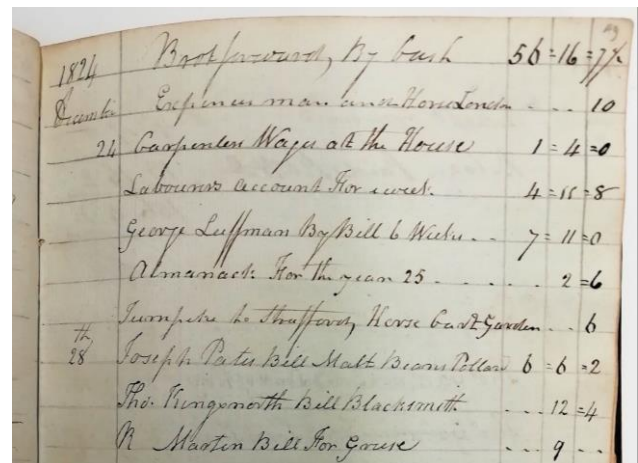 49
1824 Brot forward, By Cash 56=16=7½
December Expences man and Horse London - - . 10
24 Carpenters Wages at the House 1=4=0
Labourers account For 1 week. 4=11=8
George Luffman By Bill 6 Weeks - - 7=11=0
Almanack For the year 25 - - - - - 2=6
Turnpike to Strafford, Horse Cart Garden - - 6
28th Joseph Pates Bill Malt Beans Pollard 6=6=2
Tho. Kingsnorth Bill Blacksmith - - - 12=4
R Martin Bill For Gruse - - - 9 - -